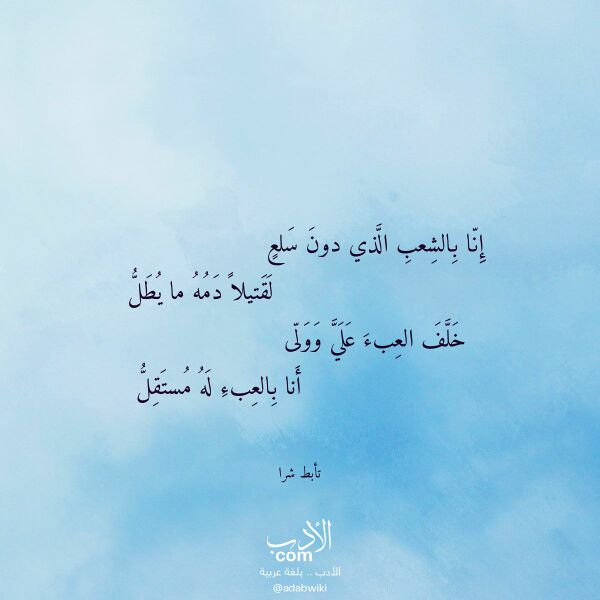 إِنّا بِالشِعبِ الَّذي دونَ سَلعٍ
لَقَتيلاً دَمُهُ ما يُطَلُّ
خَلَّفَ العِبءَ عَلَيَّ وَوَلّى
أَنا بِالعِبءِ لَهُ مُستَقِلُّ
تأبط شرا
الأدب
com
الأدب .. بلغة عربية
@adabwiki